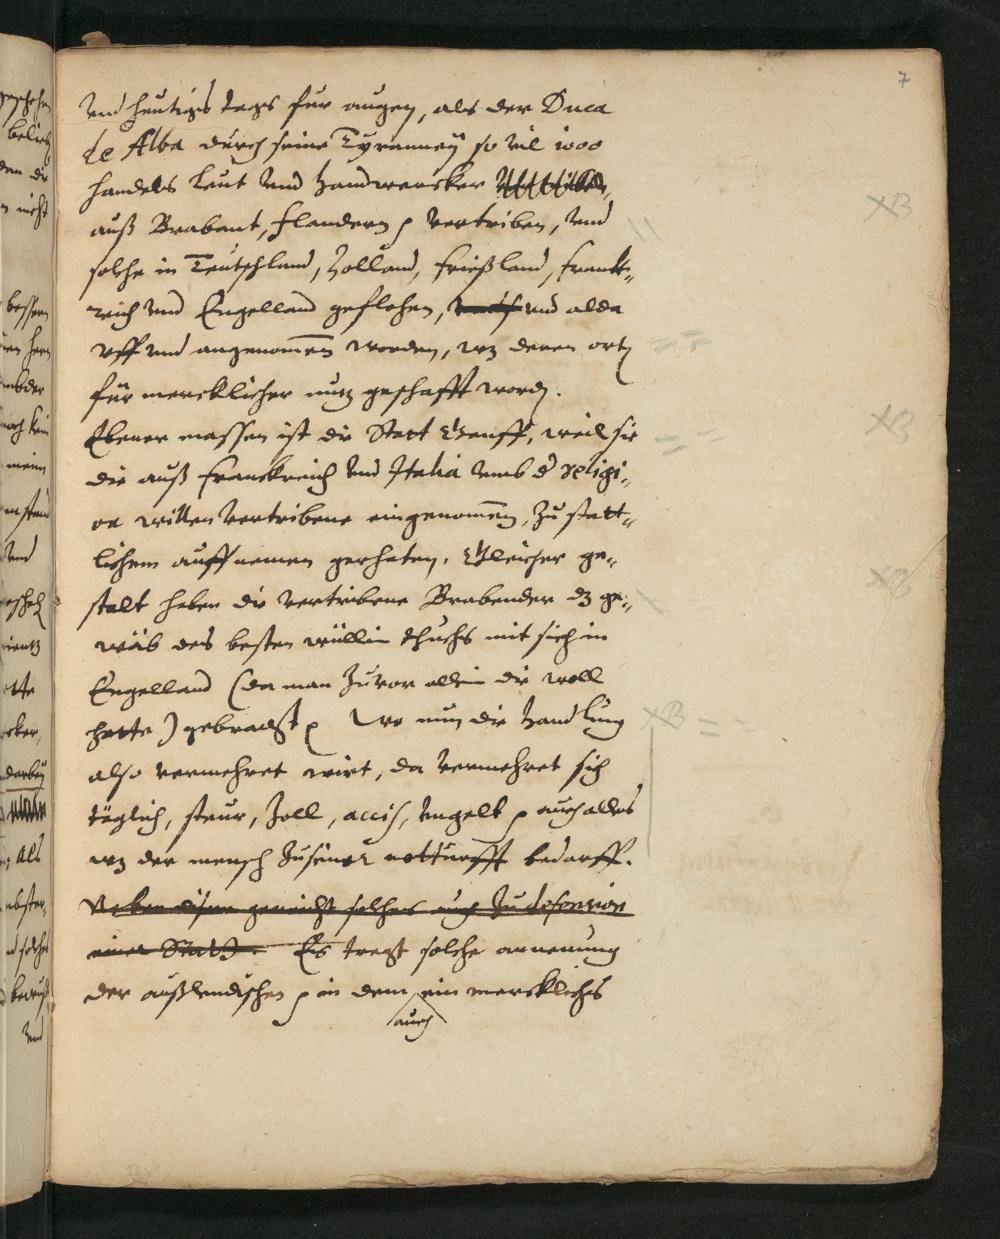 7
Vnd heutigs tags für augen, als der Duca
de Alba durch seine Tyranney so vil 1000
handels Leut vnd handwercker
auß Brabant, Flandern p vertriben, vnd
solche in Teutschland, Holland, Frießland, Franck-
reich vnd Engelland geflohen, vnd alda
vff vnd angenomen worden, wz deren orth
für mercklicher nutz geschafft word.
Ebener massen ist die Statt Genff, weil sie
die auß Franckreich vnd Italia vmb d religi-
on willen vertribene eingenomen, zu statt-
lichem auffnemen gerhaten. Gleicher ge-
stalt haben die vertribene Brabender dz ge-
wäb des besten wüllin thuchs mit sich in
Engelland (da man zuvor allein die woll
hatte) gebracht p Wo nun die handlung
also vermehret wirt, da vermehret sich
täglich, steur, Zoll, accis, vngelt p auch alles
wz der mensch zu seiner notturfft bedarff.
Neben disem gereicht solches auch zu defension
einer Statt. Es tregt solche annemung
der außlendischen p in dem ein merckliches
auch